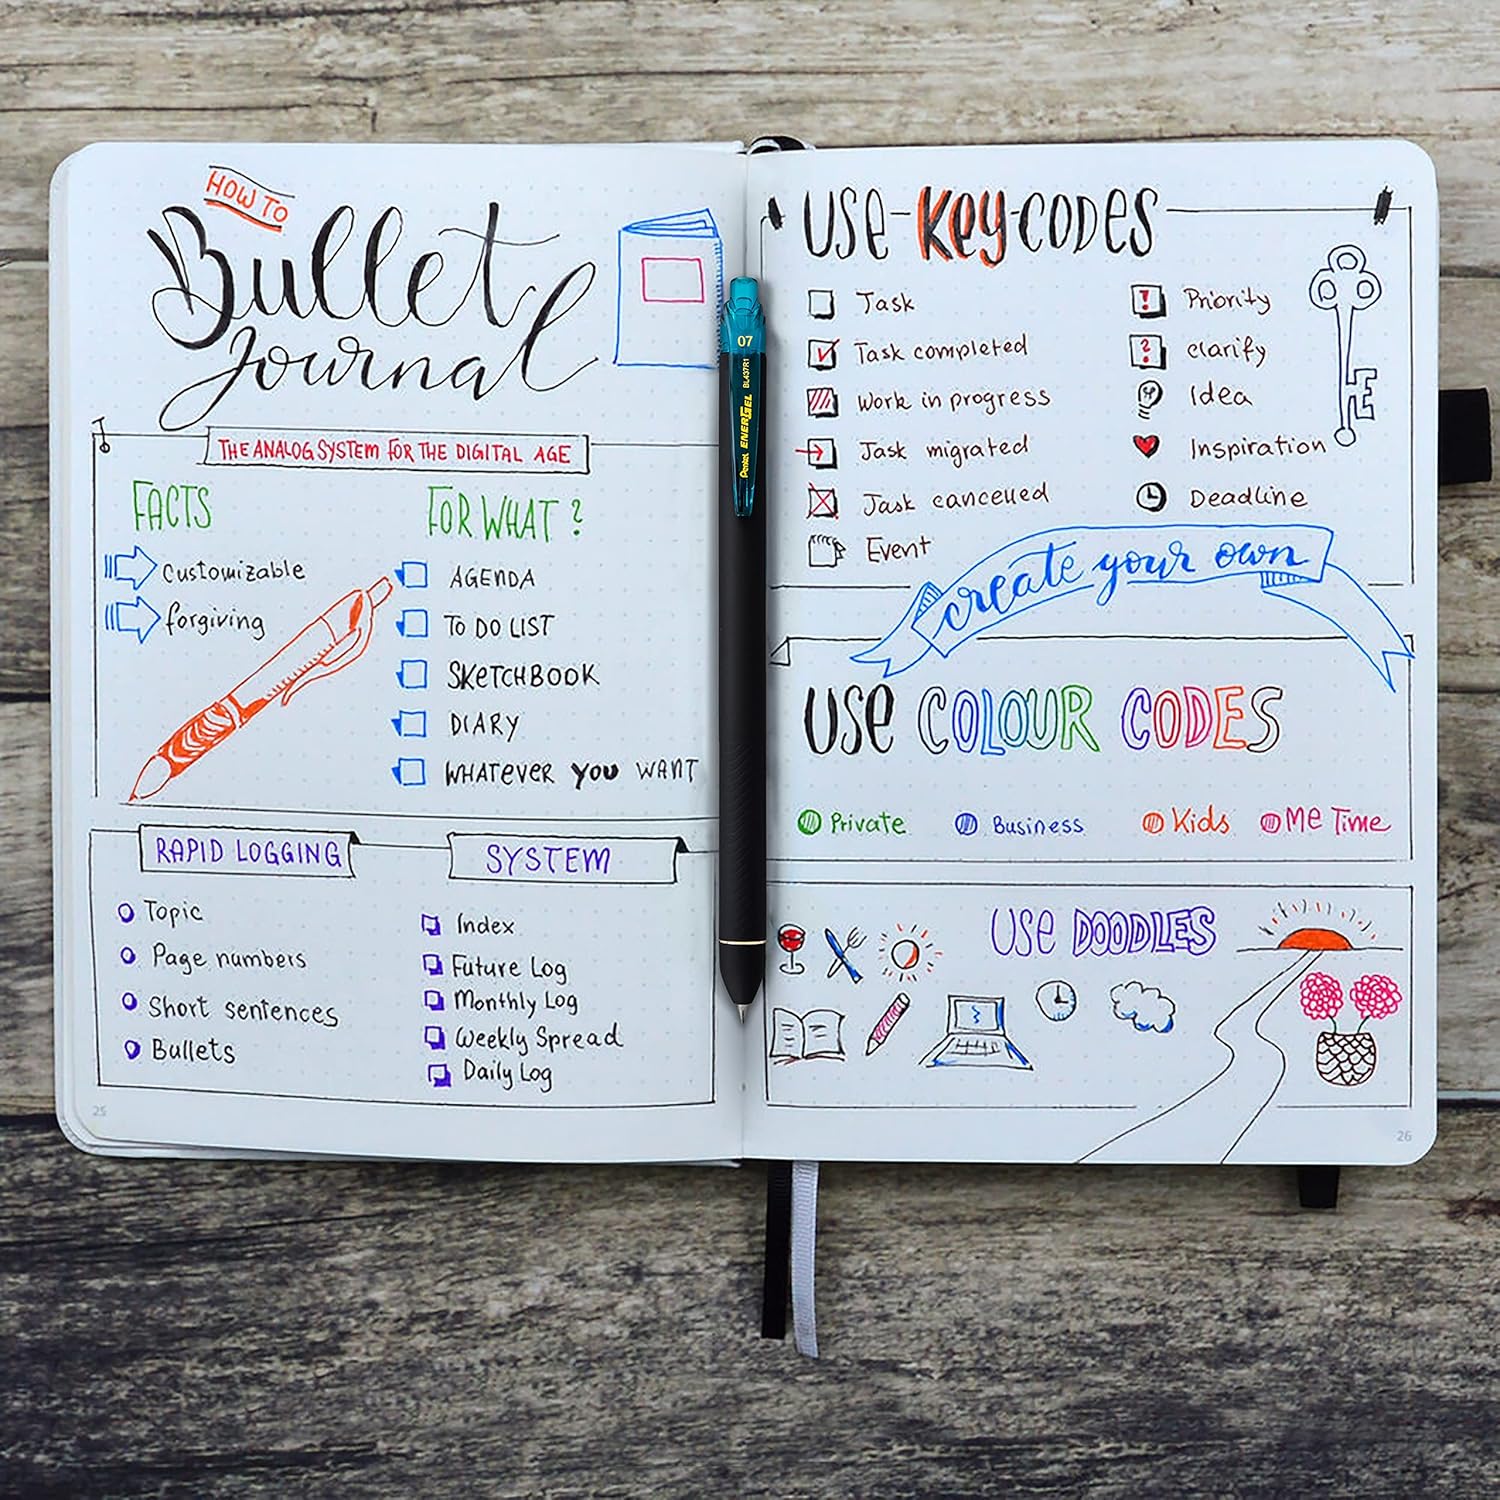 HOW TO
Bullet
Journal
THE ANALOG SYSTEM FOR THE DIGITAL AGE
FACTS
Customizable
forgiving
FOR WHAT ?
AGENDA
TO DO LIST
SKETCHBOOK
DIARY
WHATEVER YOU WANT
RAPID LOGGING
Topic
Page numbers
Short sentences
Bullets
SYSTEM
Index
Future Log
Monthly Log
Weekly Spread
Daily Log
25
07
Pentel ENERGEL BL437R1
USE-Key-CODES
Task
Task completed
Work in progress
Task migrated
Task cancelled
Event
! Priority
? clarify
Idea
Inspiration
Deadline
create your own
USE COLOUR CODES
Private
Business
Kids
Me Time
USE DOODLES
26